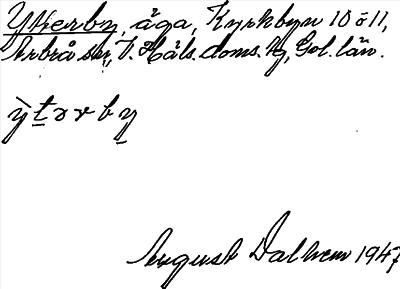 Ytterby, äga, Kyrkbyn 10 ö 11,
Arbrå sn, V. Häls. doms. Gvl. län.
ỳ t ər b y
August Dalhem 1947